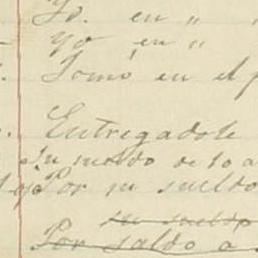 Yo. en " "
Yo en "
Tomó en el p
Entregadole
Su sueldo de 10 a
Por su sueldo
su sueldo
Por saldo a